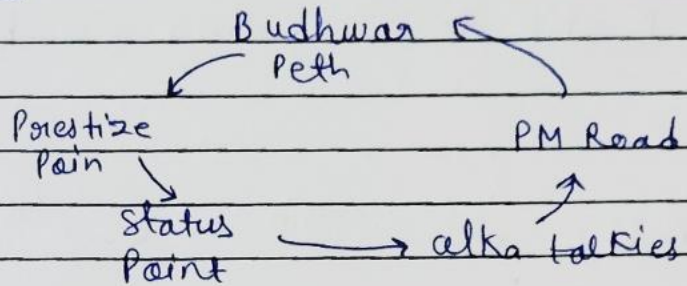 Budhwar
Peth
Prestize
Poin
PM Road
Status
Point
alka talkies